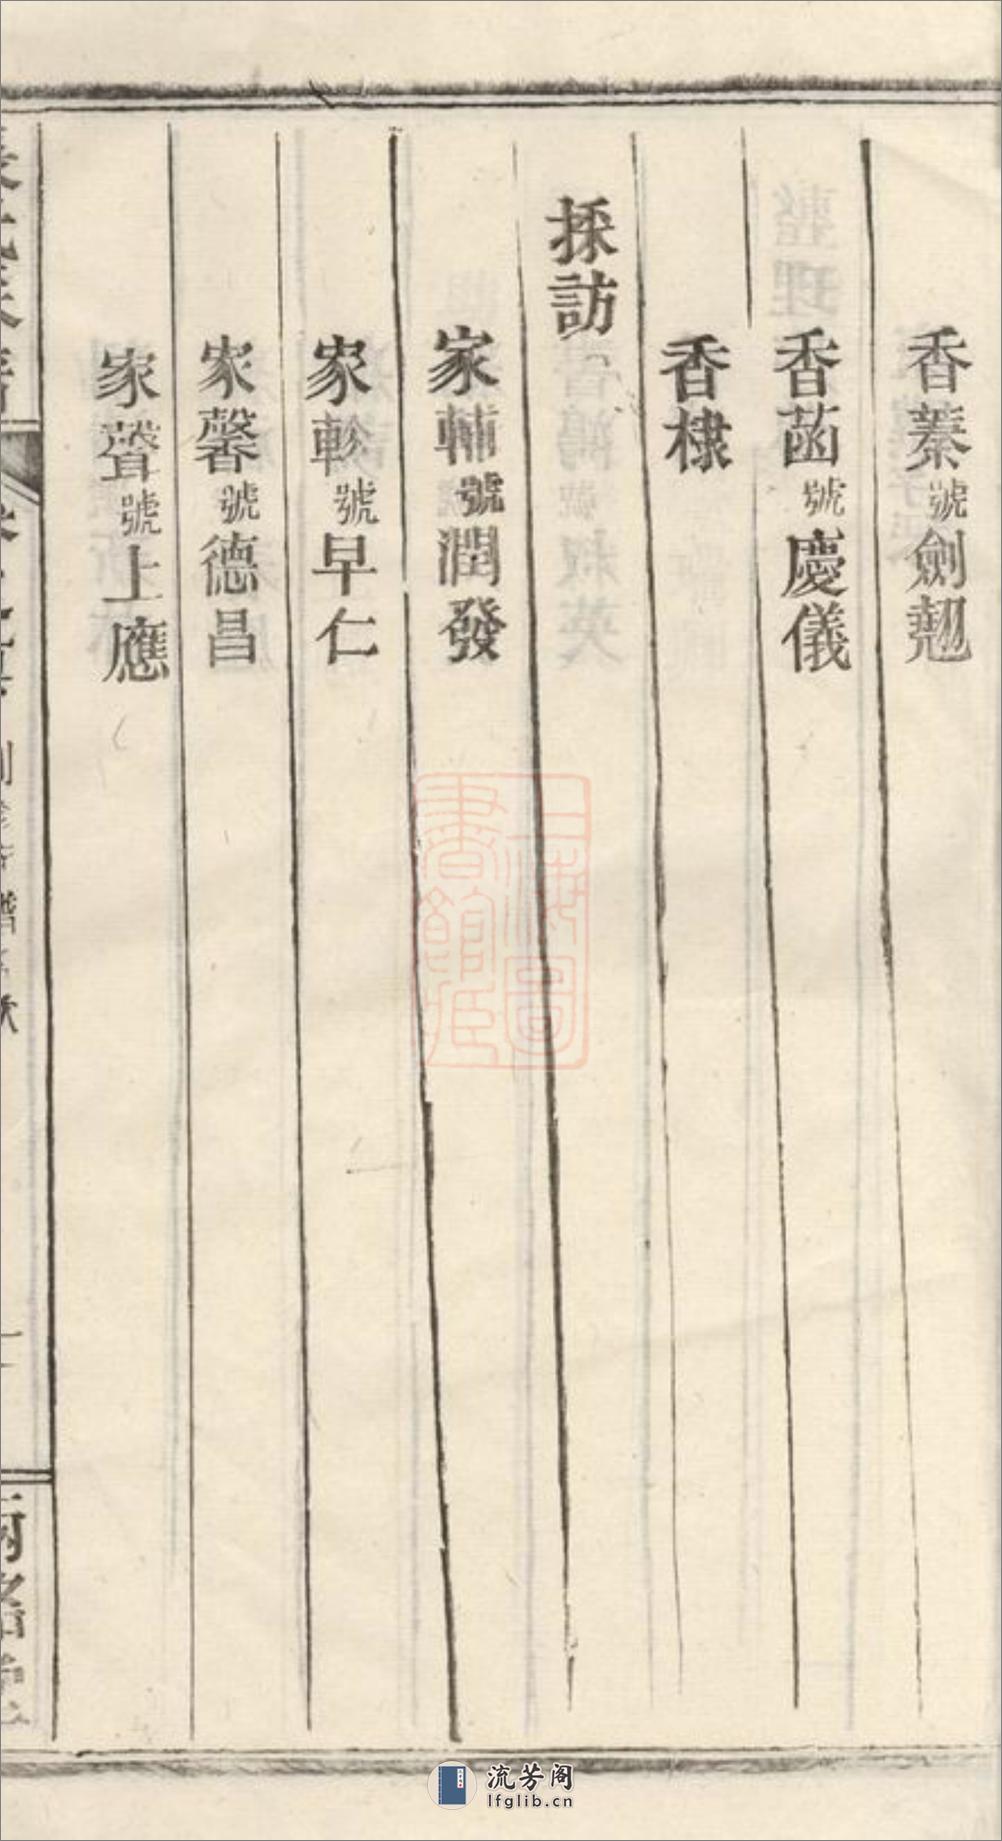 香蓁號劍翹
香菡號慶儀
香棣
採訪
家輔號潤發
家軫號早仁
家馨號德昌
家聲號上應
上海圖書館藏
流芳阁
lfglib.cn